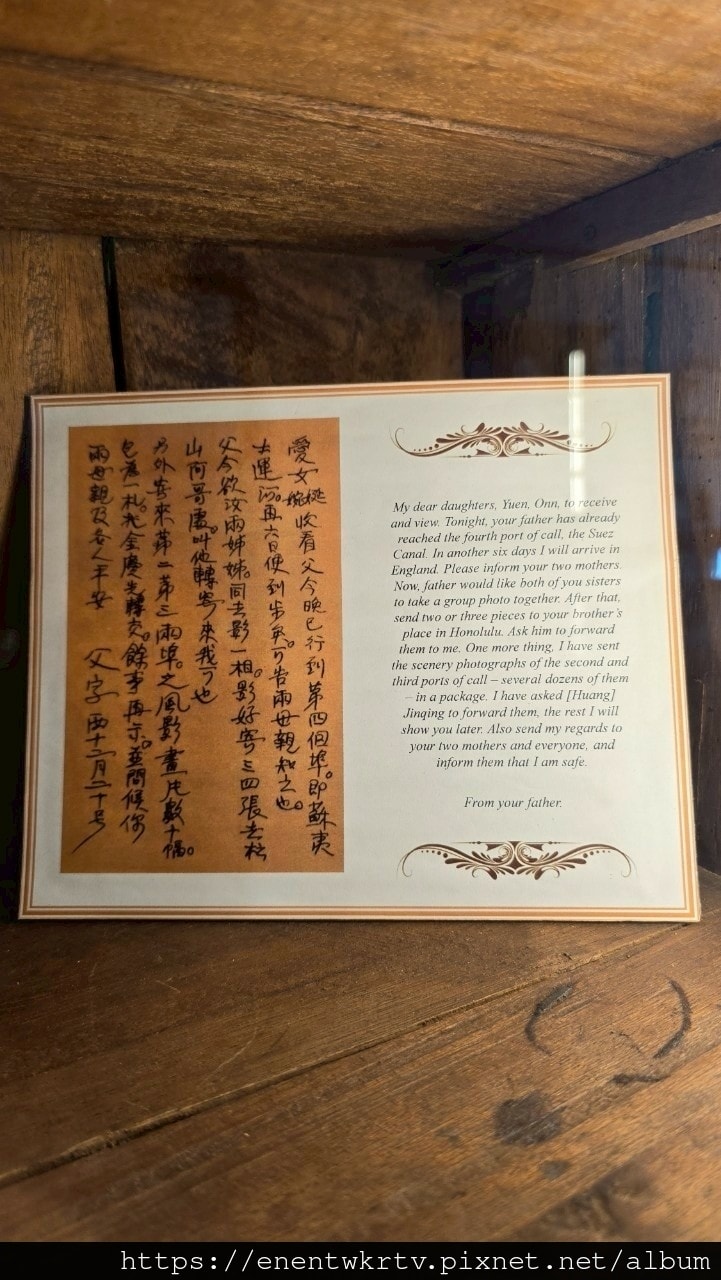 愛女婉娫收看父今晚已行到第四個埠。即蘇夷
士運河。再六日便到步矣。可告兩母親知之也。
父今欲汝兩姊姊。同去影一相。影好寄三四張去松
山阿哥處。叫他轉寄來我可也
另外寄來第二第三兩埠。之風影畫片數十幅。
包為一札。托金慶兄轉交。餘事再示。並問候你
兩母親及各人平安
父字 西十二月二十号
My dear daughters, Yuen, Onn, to receive
and view. Tonight, your father has already
reached the fourth port of call, the Suez
Canal. In another six days I will arrive in
England. Please inform your two mothers.
Now, father would like both of you sisters
to take a group photo together. After that,
send two or three pieces to your brother's
place in Honolulu. Ask him to forward
them to me. One more thing, I have sent
the scenery photographs of the second and
third ports of call – several dozens of them
– in a package. I have asked [Huang]
Jinqing to forward them, the rest I will
show you later. Also send my regards to
your two mothers and everyone, and
inform them that I am safe.
From your father.
https://enentwkrtv.pixnet.net/album